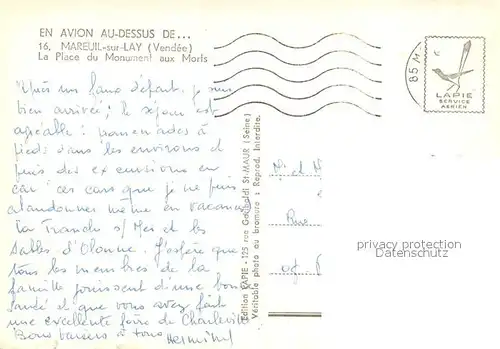 EN AVION AU-DESSUS DE...
16. MAREUIL-sur-LAY (Vendée)
La Place du Monument aux Morts
85 M
LAPIE
SERVICE
AÉRIEN
Après un faux départ, je suis
bien arrivée ; le séjour est
agréable : promenades à
pieds dans les environs et
puis des excursions en
car car ces cars que je ne puis
abandonner même en vacances
La Tranche s/Mer et les
Sables d'Olonne. J'espère que
tous les membres de la
famille jouissent d'une bonne
santé et que vous avez fait
une excellente foire de Charleville
Bons baisers à tous
Edition LAPIE - 125 rue Garibaldi St-MAUR (Seine)
Véritable photo au bromure : Reprod. Interdite.
et
Rue
Privacy protection
Datenschutz